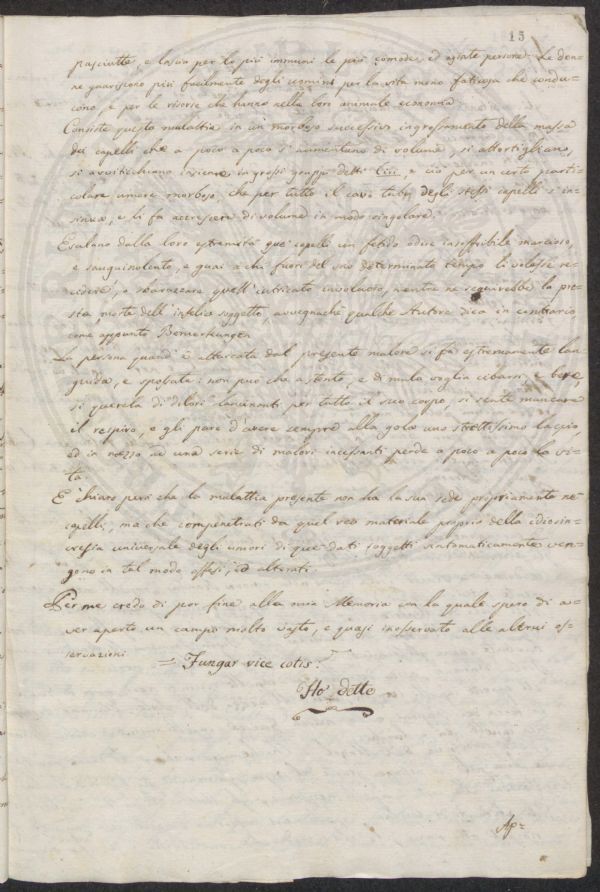 15
pasciutte, e lascia per lo più immuni le più comode, ed agiate persone. Le don-
ne guariscono più facilmente degli uomini per la vita meno faticosa che condu-
cono, e per le risorse che hanno nella loro animale economia.
Consiste questa malattia in un morboso successivo ingrossamento della massa
dei capelli che a poco a poco s'aumentano di volume, si attortigliano,
si avviticchiano insieme in grossi gruppi detti Cirri, e ciò per un certo parti-
colare umore morboso, che per tutto il cavo tubo degli stessi capelli s'in-
sinua, e li fa accrescere di volume in modo singolare.
Esalano dalla loro estremità que' capelli un fetido odore insoffribile marcioso,
e sanguinolento, e guai a chi fuori del suo determinato tempo li volesse re-
cidere, o sbarazzare quell'intricato involucro, mentre ne seguirebbe la pre-
sta morte dell'infelice soggetto avvegnachè qualche Autore dica in contrario
come appunto Bemerkungen
La persona quand'è attaccata dal presente malore si fa estremamente lan-
guida, e spossata: non può che a stento, e di mala voglia cibarsi, e bere,
si querela di dolori lancinanti per tutto il suo corpo, si sente mancare
il respiro, e gli pare d'avere sempre alla gola uno strettissimo laccio,
ed in mezzo ad una serie di malori incessanti perde a poco a poco la vi-
ta.
E' chiaro però che la malattia presente non ha la sua sede propriamente ne'
capelli, ma che compenetrati da quel reo materiale proprio della idiosin-
crasia universale degli umori di que' dati soggetti sintomaticamente ven-
gono in tal modo offesi, ed alterati.
Per me credo di por fine alla mia Memoria con la quale spero di a-
ver aperto un campo molto vasto, e quasi inosservato alle altrui os-
servazioni.
= Fungar vice cotis.
Ho detto
Ap=